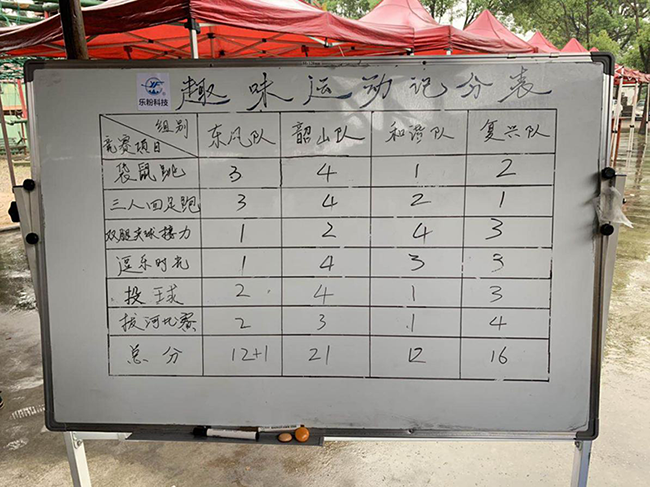 乐粉科技
趣味运动记分表
组别 东风队 韶山队 和谐队 复兴队
竞赛项目
袋鼠跳 3 4 1 2
三人四足跑 3 4 2 1
双腿夹球接力 1 2 4 3
逗乐时光 1 4 3 3
投球 2 4 1 3
拔河比赛 2 3 1 4
总分 12+1 21 12 16